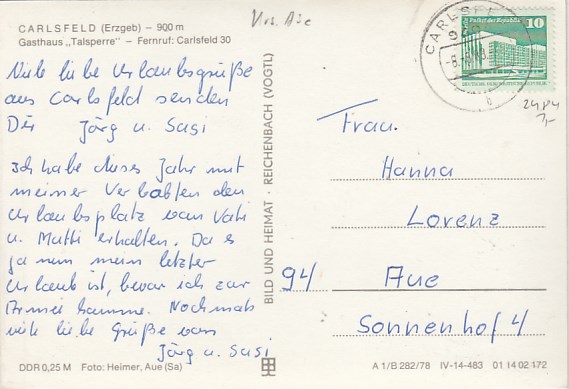 CARLSFELD (Erzgeb) – 900 m
Gasthaus „Talsperre" – Fernruf: Carlsfeld 30
Viele liebe Urlaubsgrüße
aus Carlsfeld senden
Dir Jörg u. Sasi
Ich habe dieses Jahr mit
meiner Verlobten den
Urlaubsplatz von Vati
u. Mutti erhalten. Da es
ja nun mein letzter
Urlaub ist, bevor ich zur
Armee komme. Nochmals
viele liebe Grüße von
Jörg u. Sasi
DDR 0,25 M Foto: Heimer, Aue (Sa)
BILD UND HEIMAT · REICHENBACH (VOGTL)
CARLSFELD
10
2484
Frau.
Hanna
Lorenz
94 Aue
Sonnenhof 4
A 1/B 282/78 IV-14-483 01 14 02 172